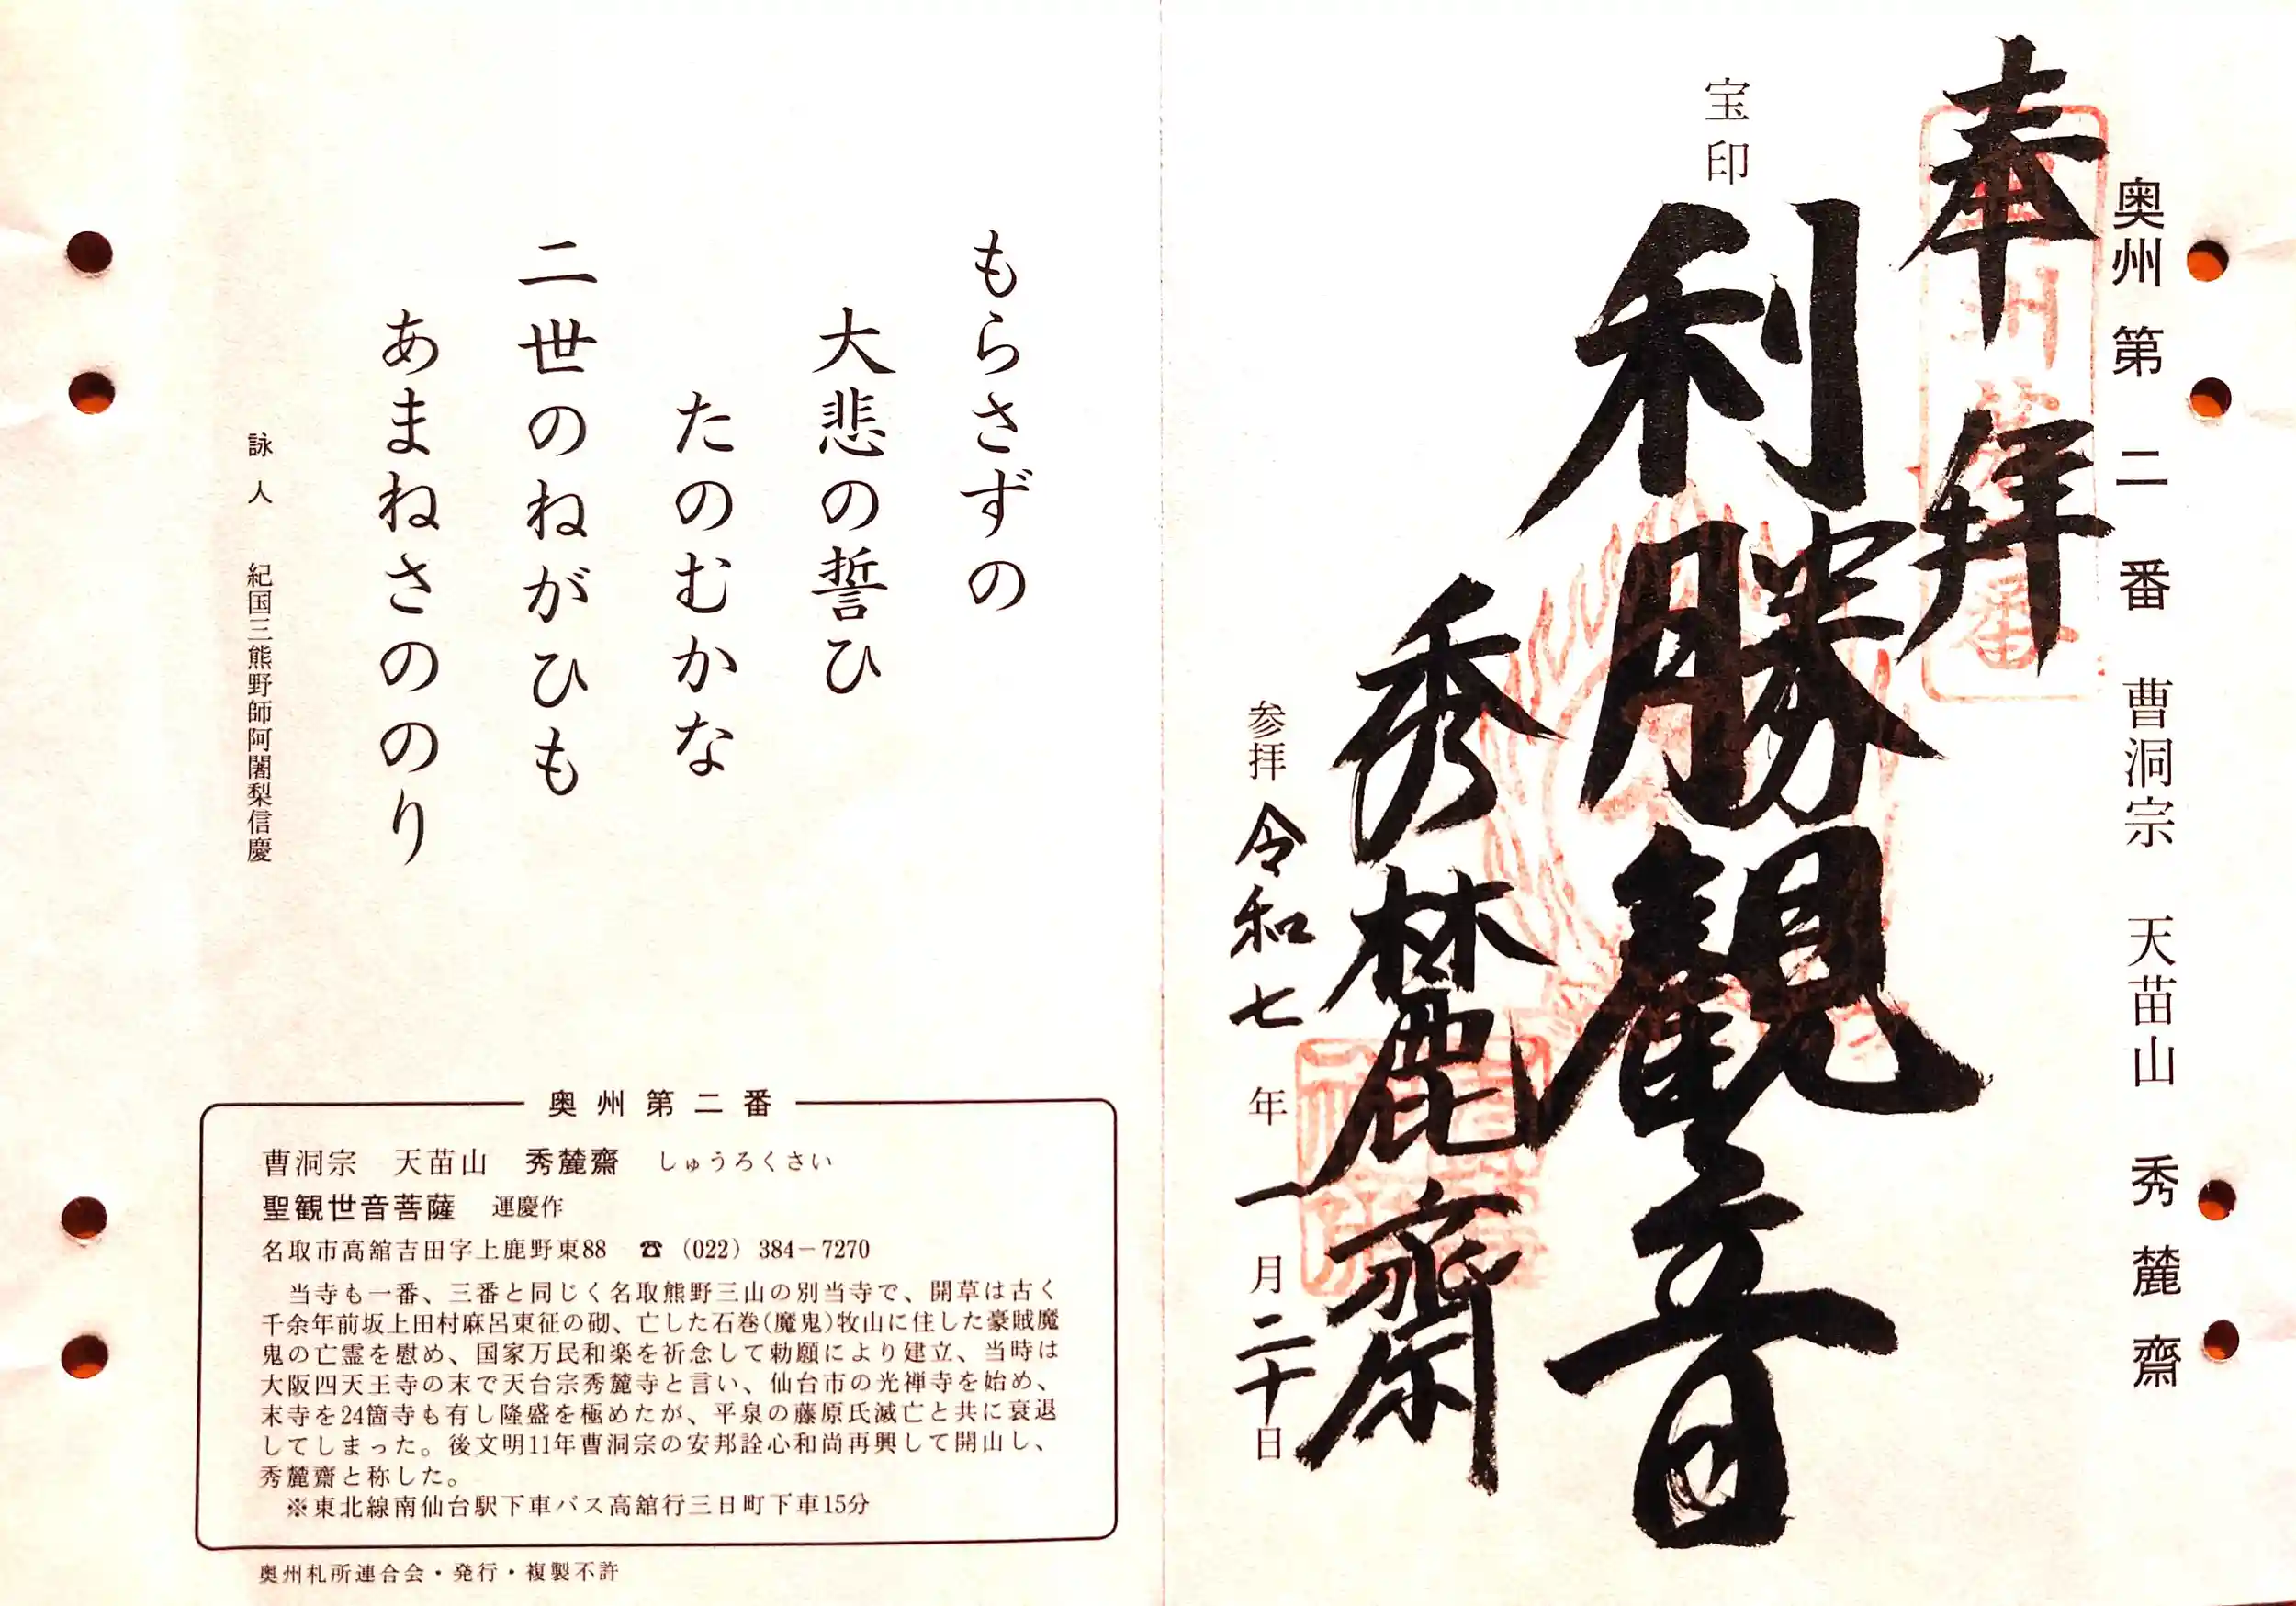 奥州第二番 曹洞宗 天苗山 秀麓齋
奉拝
宝印
利勝観音
秀麓齋
参拝 令和七年一月二十日
もらさずの
大悲の誓ひ
たのむかな
二世のねがひも
あまねさののり
詠人 紀国三熊野師阿闍梨信慶
奥州第二番
曹洞宗 天苗山 秀麓齋 しゅうろくさい
聖観世音菩薩 運慶作
名取市高舘吉田字上鹿野東88 ☎ (022) 384-7270
当寺も一番、三番と同じく名取熊野三山の別当寺で、開草は古く
千余年前坂上田村麻呂東征の砌、亡した石巻(魔鬼)牧山に住した豪賊魔
鬼の亡霊を慰め、国家万民和楽を祈念して勅願により建立、当時は
大阪四天王寺の末で天台宗秀麓寺と言い、仙台市の光禅寺を始め、
末寺を24箇寺も有し隆盛を極めたが、平泉の藤原氏滅亡と共に衰退
してしまった。後文明11年曹洞宗の安邦詮心和尚再興して開山し、
秀麓齋と称した。
※東北線南仙台駅下車バス高舘行三日町下車15分
奥州札所連合会・発行・複製不許